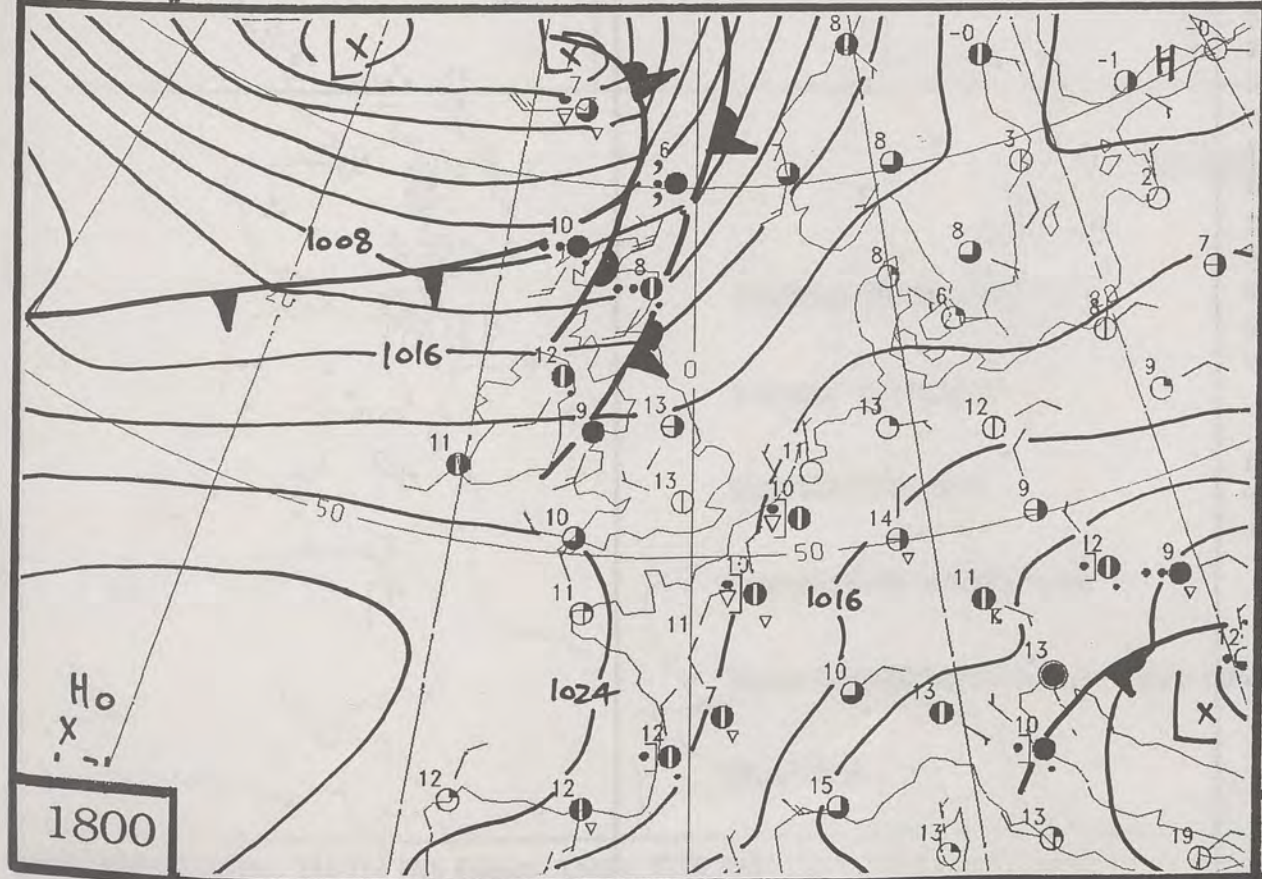 8
-0
-0
-1
H
L x
L x
7
6
7
8
3
2
10
1008
8
8
8
7
20
6
8
1016
12
0
9
9
13
13
12
11
11
13
10
9
50
10
14
50
12
9
11
10
1016
11
11
12
13
1024
7
10
13
10
L x
Ho
X
12
12
12
15
13
13
19
1800